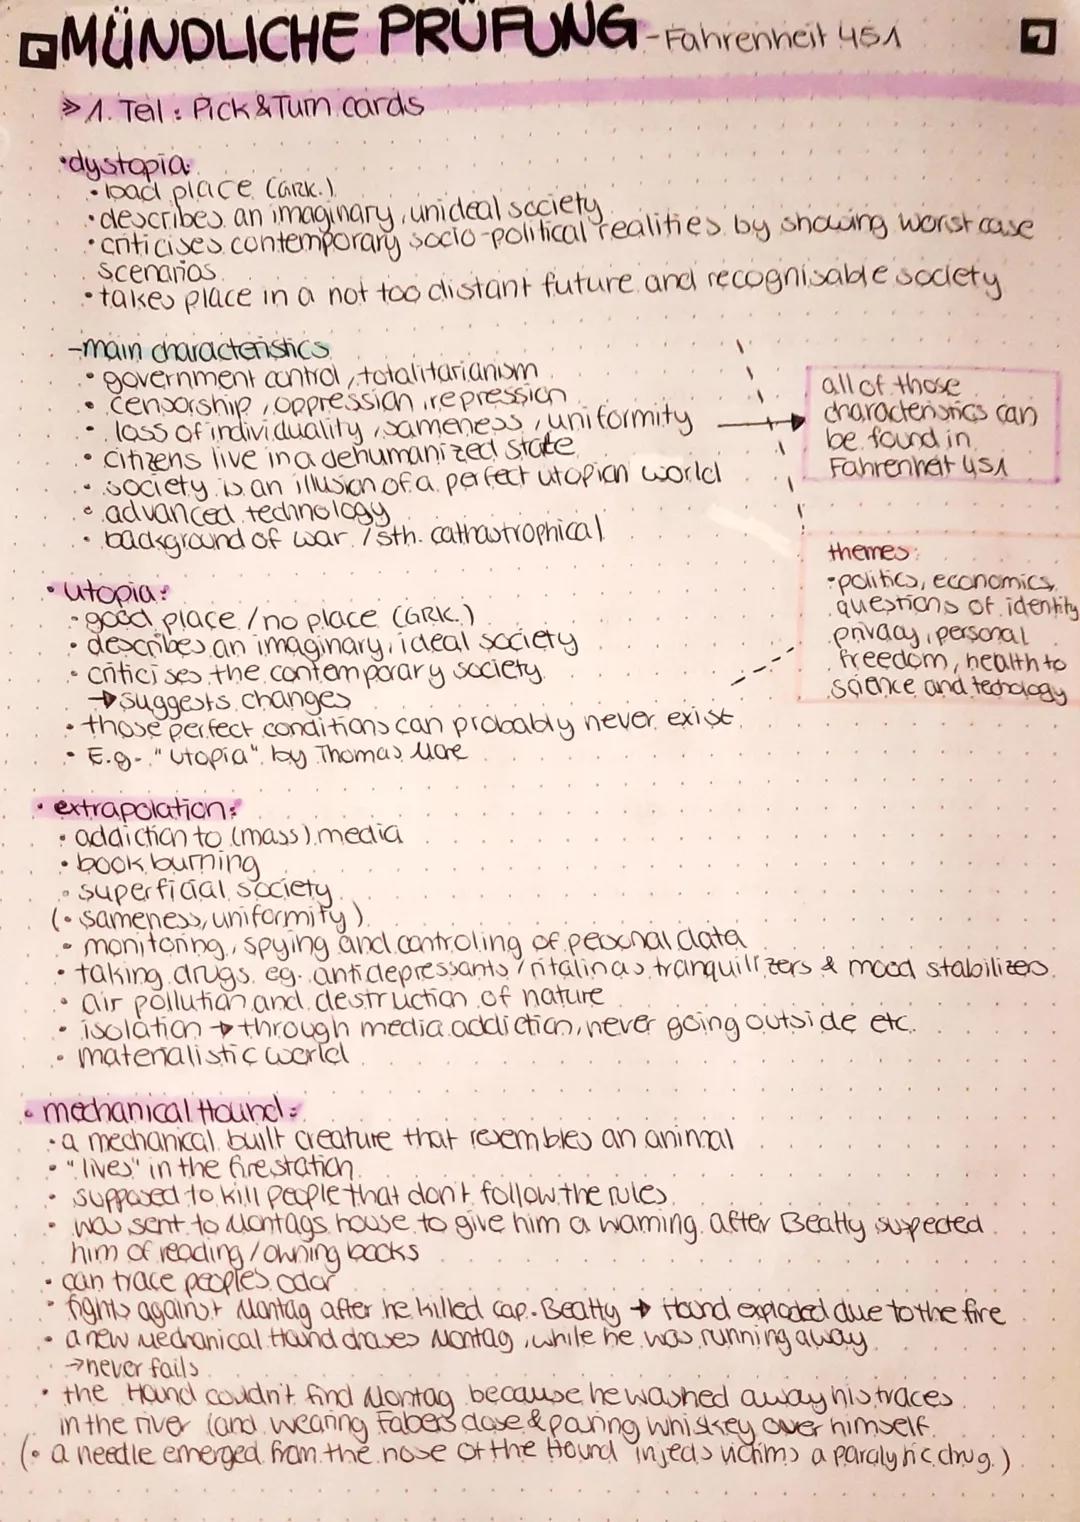 MÜNDLICHE PRÜFUNG - Fahrenheit 451
1
» 1. Teil: Pick & Turn cards
• dystopia:
• bad place (GRK.)
• describes an imaginary, unideal society
• criticises contemporary socio-political realities by showing worst case
scenarios
• takes place in a not too distant future and recognisable society
- main characteristics
• government control, totalitarianism
• censorship, oppression, repression
• loss of individuality, sameness, uniformity
• citizens live in a dehumanized state
• society is an illusion of a perfect utopian world
• advanced technology
• background of war / sth. cathastrophical
all of those
characteristics can
be found in
Fahrenheit 451
themes:
• politics, economics,
questions of identity
privacy, personal
freedom, health to
science and techology
• utopia:
• good place / no place (GRK.)
• describes an imaginary, ideal society
• criticises the contemporary society
→ suggests changes
• those perfect conditions can probably never exist
• E.g. "Utopia" by Thomas More
• extrapolation:
• addiction to (mass) media
• book burning
• superficial society
(• sameness, uniformity)
• monitoring, spying and controling of personal data
• taking drugs eg. antidepressants / ritalin as tranquilizers & mood stabilizers
• air pollution and destruction of nature
• isolation → through media addiction, never going outside etc.
• materialistic world
• mechanical Hound:
• a mechanical built creature that resembles an animal
• "lives" in the firestation
• supposed to kill people that don't follow the rules
• was sent to Montags house to give him a warning after Beatty suspected
him of reading / owning books
• can trace people's odor
• fights against Montag after he killed cap. Beatty → Hound exploded due to the fire
• a new Mechanical Hound chases Montag, while he was running away
→ never fails
• the Hound couldn't find Montag because he washed away his traces
in the river (and wearing Fabers close & pouring whiskey over himself
(• a needle emerged from the nose of the Hound injects victims a paralytic drug.)